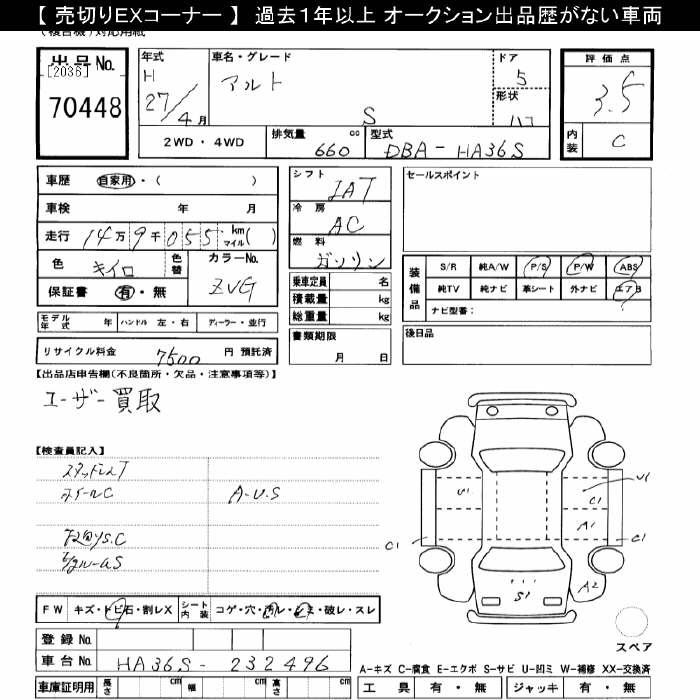 【 売切りEXコーナー 】 過去1年以上 オークション出品歴がない車両
(複合機)対応用紙
出品No.
[2036]
70448
年式
H
27/4月
車名・グレード
アルト
S
ドア
5
形状
ハコ
2WD・4WD
排気量 cc
660
型式
DBA-HA36S
評価点
3.5
内装
C
車歴 自家用・( )
車検 年 月
走行 14万9千055 km マイル( )
色 キイロ 色替
カラーNo. ZVG
保証書 有・無
モデル年式 年 ハンドル 左・右 ディーラー・並行
リサイクル料金 7500 円 預託済
シフト
IAT
冷房
AC
燃料
ガソリン
乗車定員 名
積載量 kg
総重量 kg
書類期限
月 日
セールスポイント
装備品
S/R 純A/W P/S P/W ABS
純TV 純ナビ 革シート 外ナビ エアB
ナビ型番:
後日品
【出品店申告欄(不良箇所・欠品・注意事項等)】
ユーザー買取
【検査員記入】
スタッドレスT
ホイールC
A-U.S
U1
U1
C1
A1
C1
C1
A2
S1
FW キズ・トビ石・割レX
シート内装 コゲ・穴・汚レ・キズ・破レ・スレ
スペア
登録No.
車台No. HA36S-232496
車庫証明用 長さ cm 幅 cm 高さ cm
A-キズ C-腐食 E-エクボ S-サビ U-凹ミ W-補修 XX-交換済
工具 有・無 ジャッキ 有・無